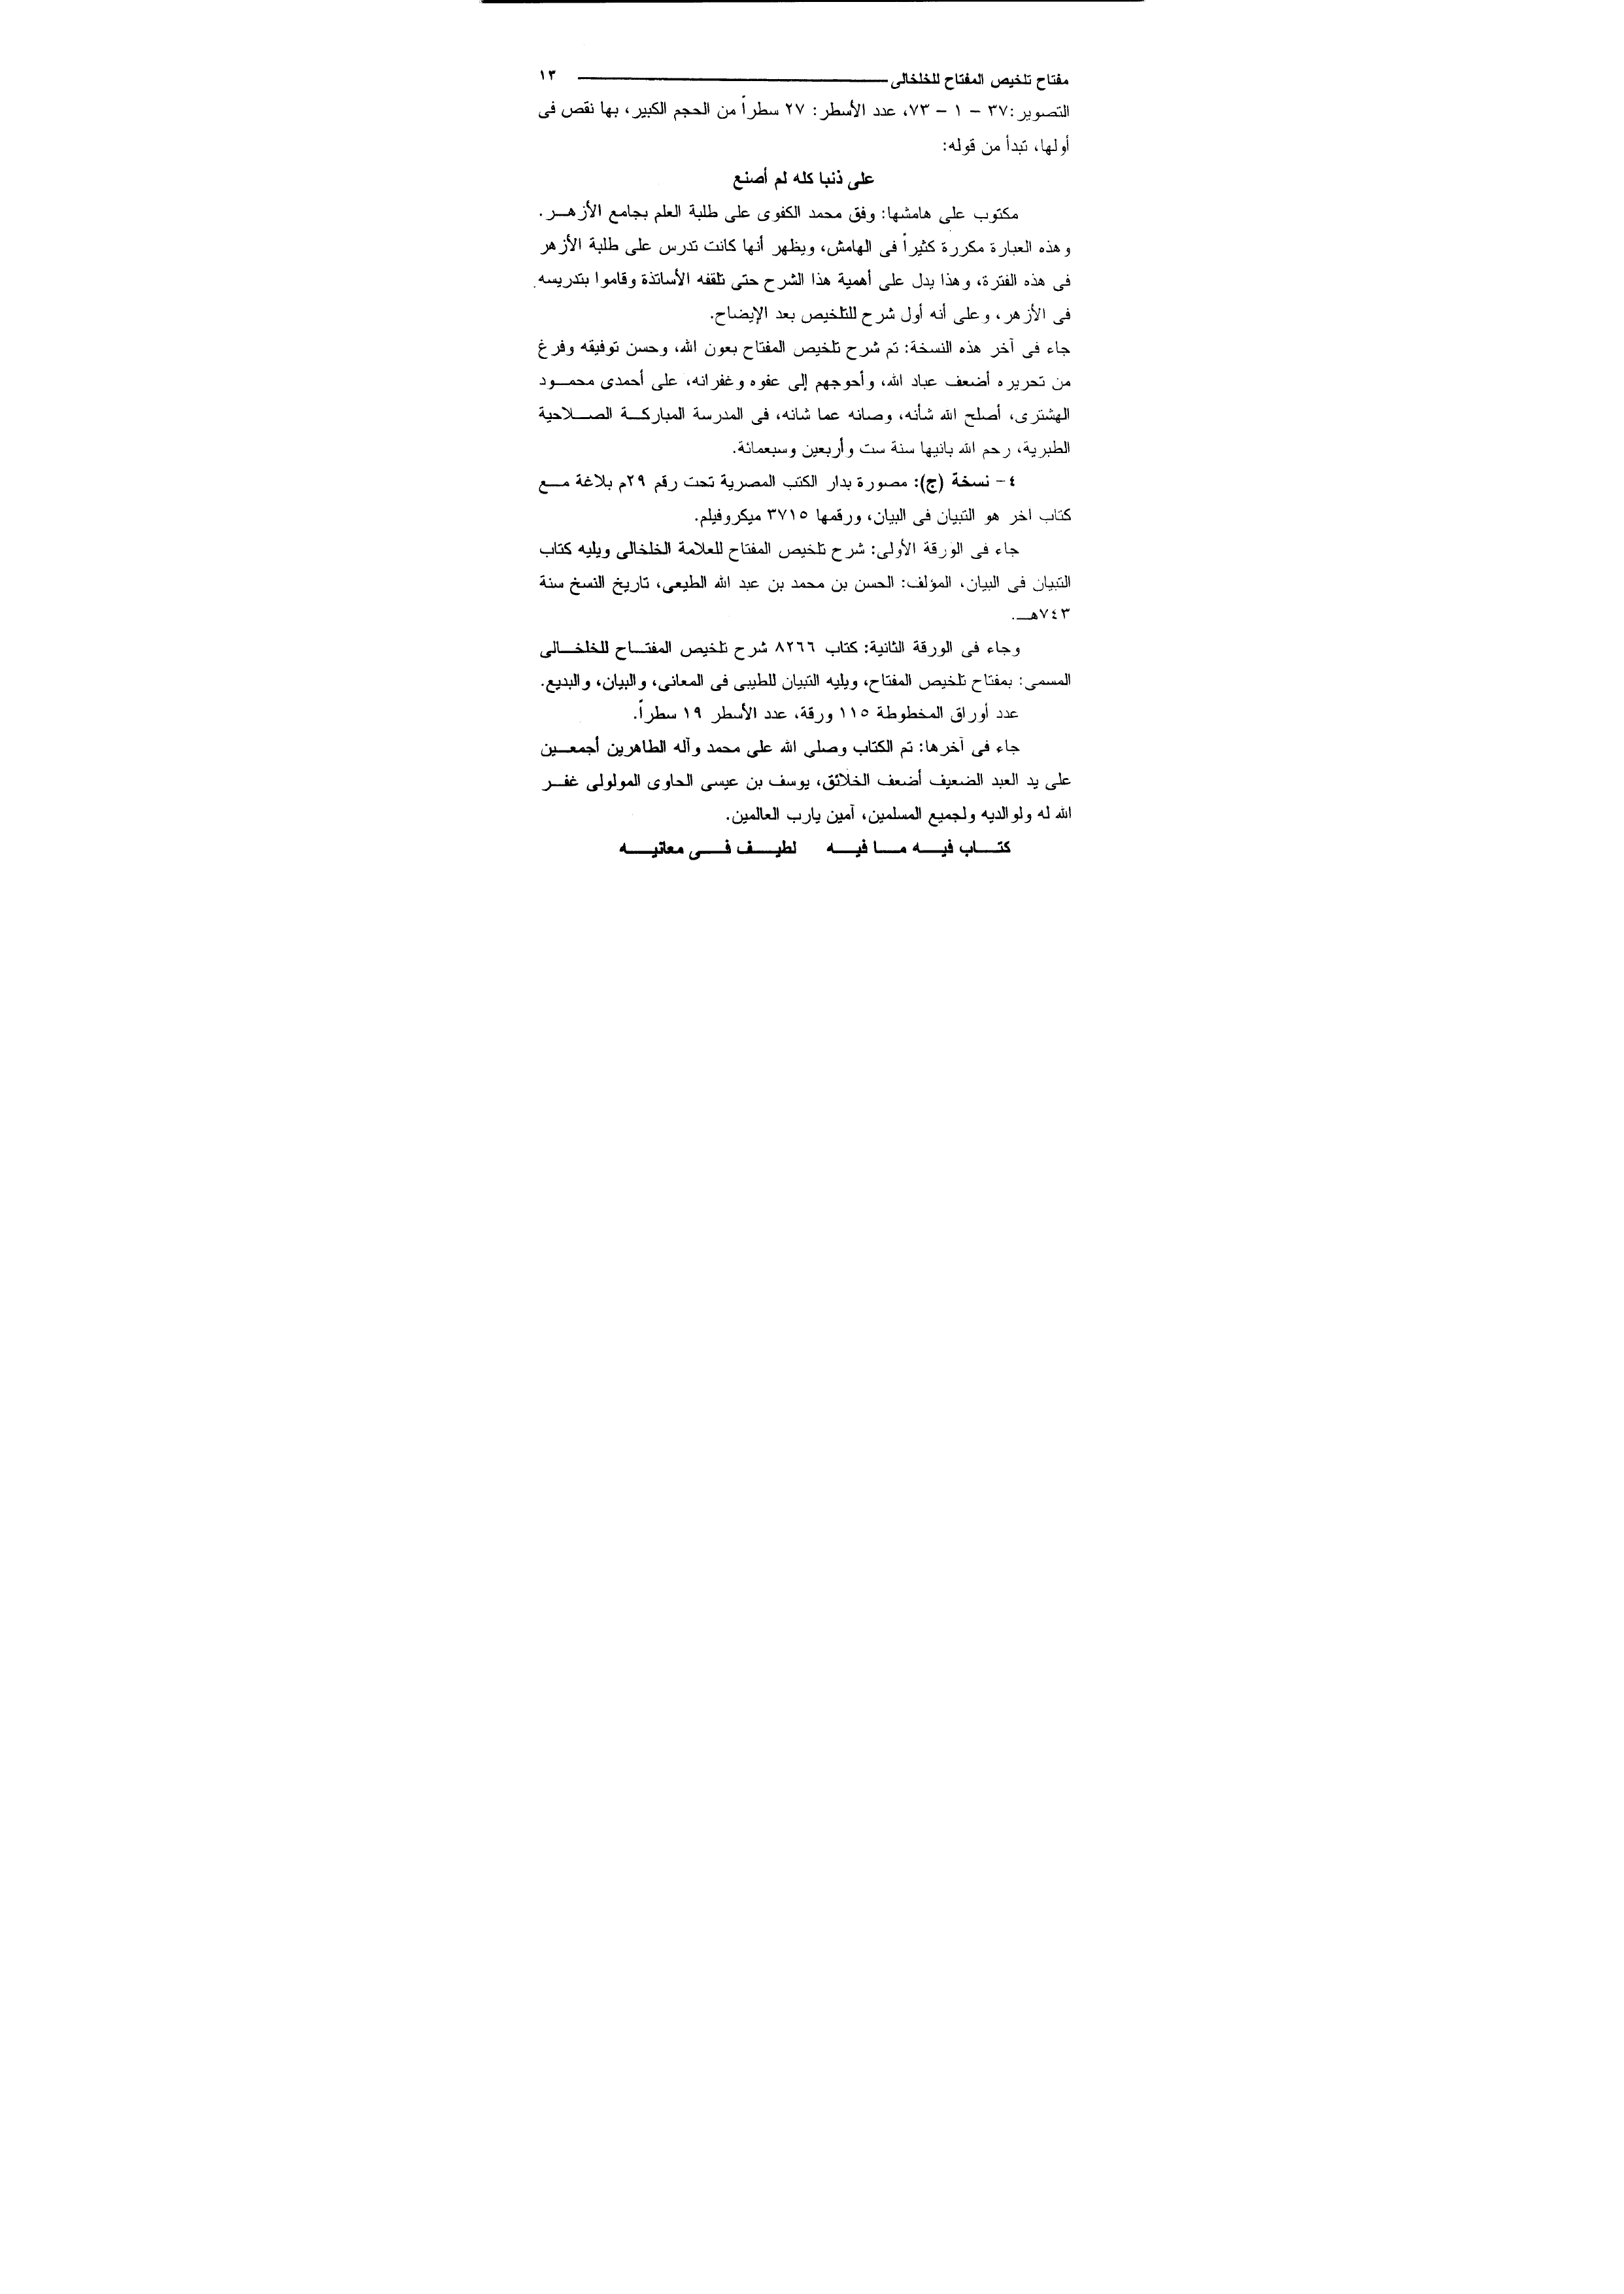 مفتاح تلخيص المفتاح للخلخالى ١٣
التصوير: ٣٧ – ١ – ٧٣، عدد الأسطر: ٢٧ سطراً من الحجم الكبير، بها نقص فى
أولها، تبدأ من قوله:
على ذنبا كله لم أصنع
مكتوب على هامشها: وفق محمد الكفوى على طلبة العلم بجامع الأزهر.
وهذه العبارة مكررة كثيراً فى الهامش، ويظهر أنها كانت تدرس على طلبة الأزهر
فى هذه الفترة، وهذا يدل على أهمية هذا الشرح حتى تلقفه الأساتذة وقاموا بتدريسه
فى الأزهر، وعلى أنه أول شرح للتلخيص بعد الإيضاح.
جاء فى آخر هذه النسخة: تم شرح تلخيص المفتاح بعون الله، وحسن توفيقه وفرغ
من تحريره أضعف عباد الله، وأحوجهم إلى عفوه وغفرانه، على أحمدى محمود
الهشترى، أصلح الله شأنه، وصانه عما شانه، فى المدرسة المباركة الصلاحية
الطبرية، رحم الله بانيها سنة ست وأربعين وسبعمائة.
٤- نسخة (ج): مصورة بدار الكتب المصرية تحت رقم ٢٩م بلاغة مع
كتاب اخر هو التبيان فى البيان، ورقمها ٣٧١٥ ميكروفيلم.
جاء فى الورقة الأولى: شرح تلخيص المفتاح للعلامة الخلخالى ويليه كتاب
التبيان فى البيان، المؤلف: الحسن بن محمد بن عبد الله الطيعى، تاريخ النسخ سنة
٧٤٣هـ.
وجاء فى الورقة الثانية: كتاب ٨٢٦٦ شرح تلخيص المفتاح للخلخالى
المسمى: بمفتاح تلخيص المفتاح، ويليه التبيان للطيبى فى المعانى، والبيان، والبديع.
عدد أوراق المخطوطة ١١٥ ورقة، عدد الأسطر ١٩ سطراً.
جاء فى آخرها: تم الكتاب وصلى الله على محمد وآله الطاهرين أجمعين
على يد العبد الضعيف أضعف الخلائق، يوسف بن عيسى الحاوى المولولى غفر
الله له ولوالديه ولجميع المسلمين، آمين يارب العالمين.
كتاب فيه ما فيه لطيف فى معانيه